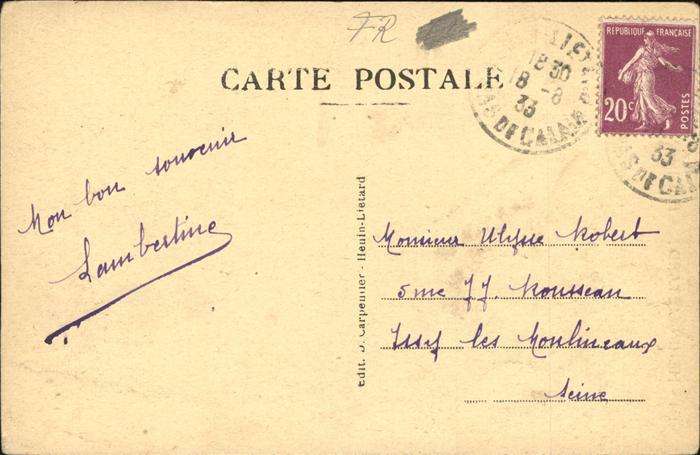 FR
CARTE POSTALE
RÉPUBLIQUE FRANÇAISE
20c
POSTES
18 30
18 -8
33
PAS DE CALAIS
33
PAS DE CALAIS
Mon bon souvenir
Lambertine
Edit. D. Carpentier - Henin-Liétard
Monsieur Ulysse Robert
5 me JJ. Rousseau
Issy les Moulineaux
Seine